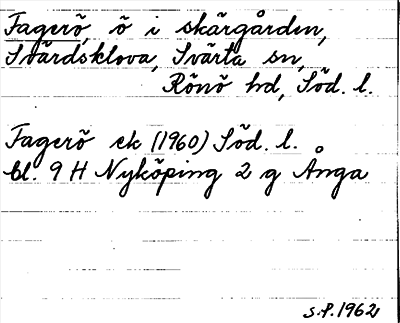 Fagerö, ö i skärgården,
Svärdsklova, Svärta sn,
Rönö hd, Söd. l.
Fagerö ek (1960) Söd. l.
bl. 9 H Nyköping 2 g Ånga
S.P. 1962